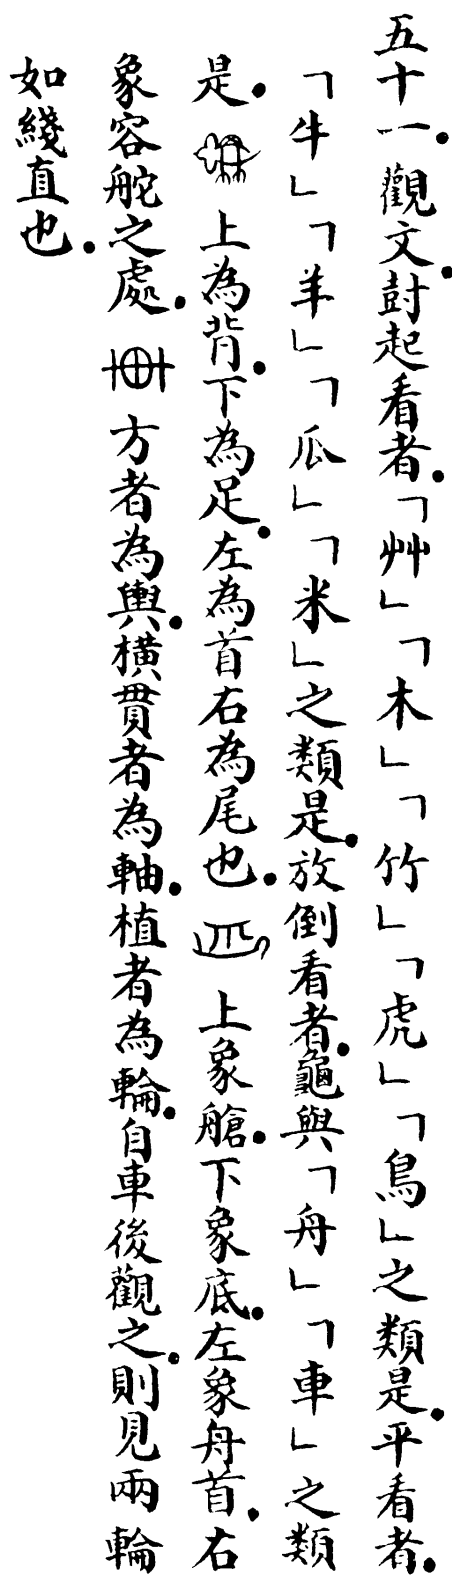 五十一。觀文。尌起看者。「艸」「木」「竹」「虎」「鳥」之類是。平看者。
「牛」「羊」「瓜」「米」之類是。放倒看者。龜與「舟」「車」之類
是。上為背。下為足。左為首右為尾也。上象艙。下象底。左象舟首。右
象容舵之處。方者為輿。橫貫者為軸。植者為輪。自車後觀之。則見兩輪
如綫直也。